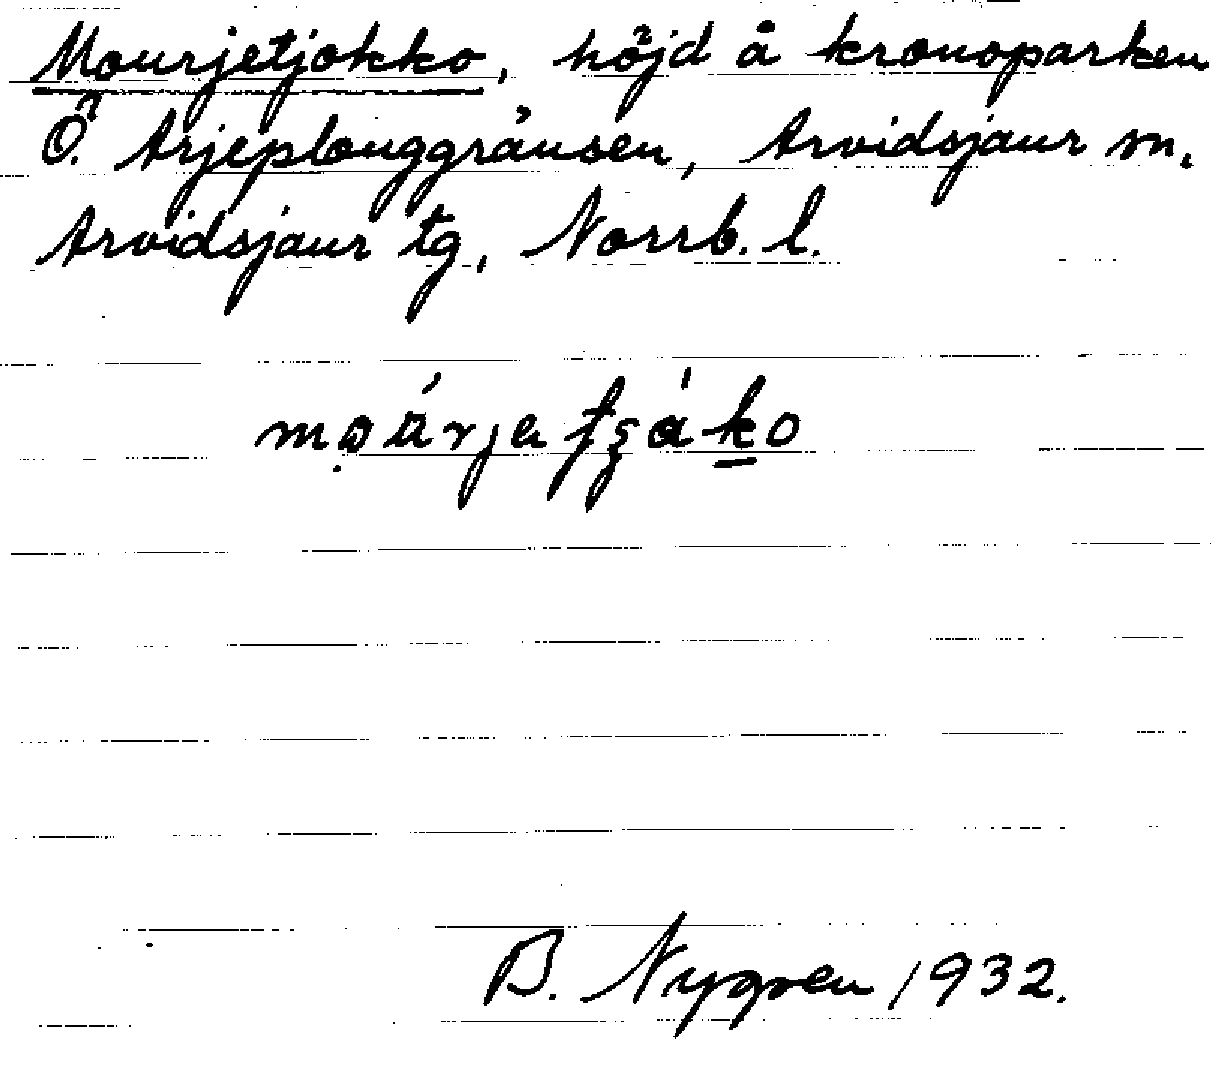 Mourjetjokko, höjd å kronoparken
Ö. Arjeplouggränsen, Arvidsjaur sn,
Arvidsjaur tg, Norrb. l.
B. Nygren 1932.